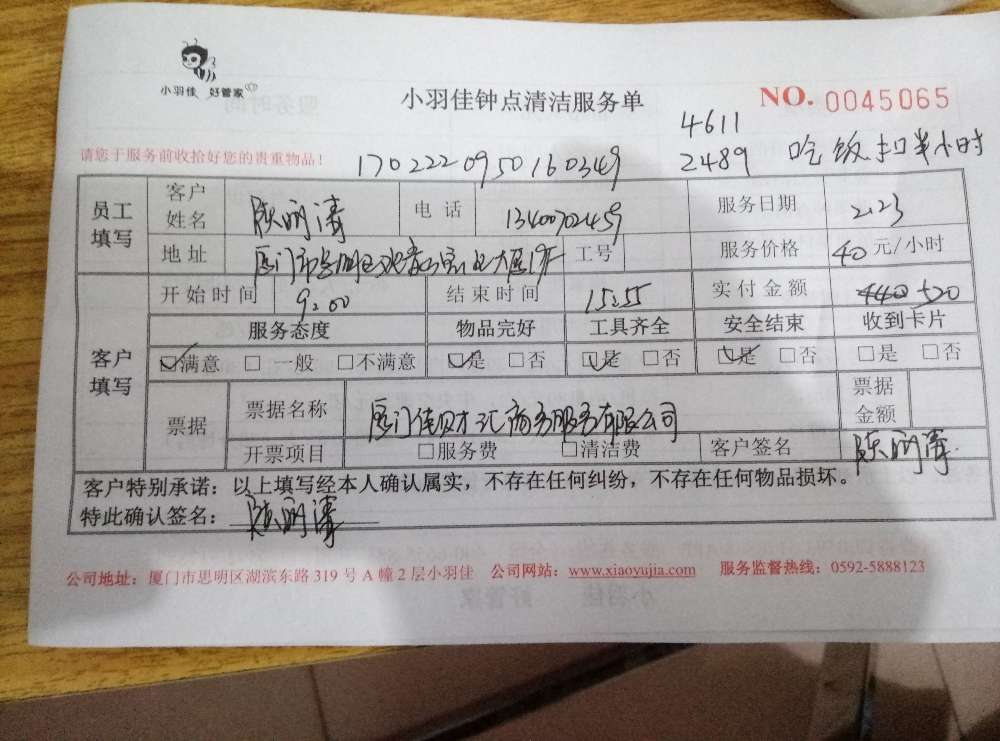 小羽佳 好管家
小羽佳钟点清洁服务单 NO. 0045065
4611
请您于服务前收拾好您的贵重物品! 1702220950160349 2489 吃饭扣半小时
员工填写 客户姓名 陈丽涛 电话 13400702459 服务日期 2.23
地址 厦门市 工号 服务价格 40 元/小时
开始时间 9:00 结束时间 15:55 实付金额 440 520
客户填写 服务态度 物品完好 工具齐全 安全结束 收到卡片
☑满意 □一般 □不满意 ☑是 □否 ☑是 □否 ☑是 □否 □是 □否
票据 票据名称 厦门佳贝才汇商务服务有限公司 票据金额
开票项目 □服务费 □清洁费 客户签名 陈丽涛
客户特别承诺：以上填写经本人确认属实，不存在任何纠纷，不存在任何物品损坏。
特此确认签名：陈丽涛
公司地址：厦门市思明区湖滨东路 319 号 A 幢 2 层小羽佳 公司网站：www.xiaoyujia.com 服务监督热线：0592-5888123